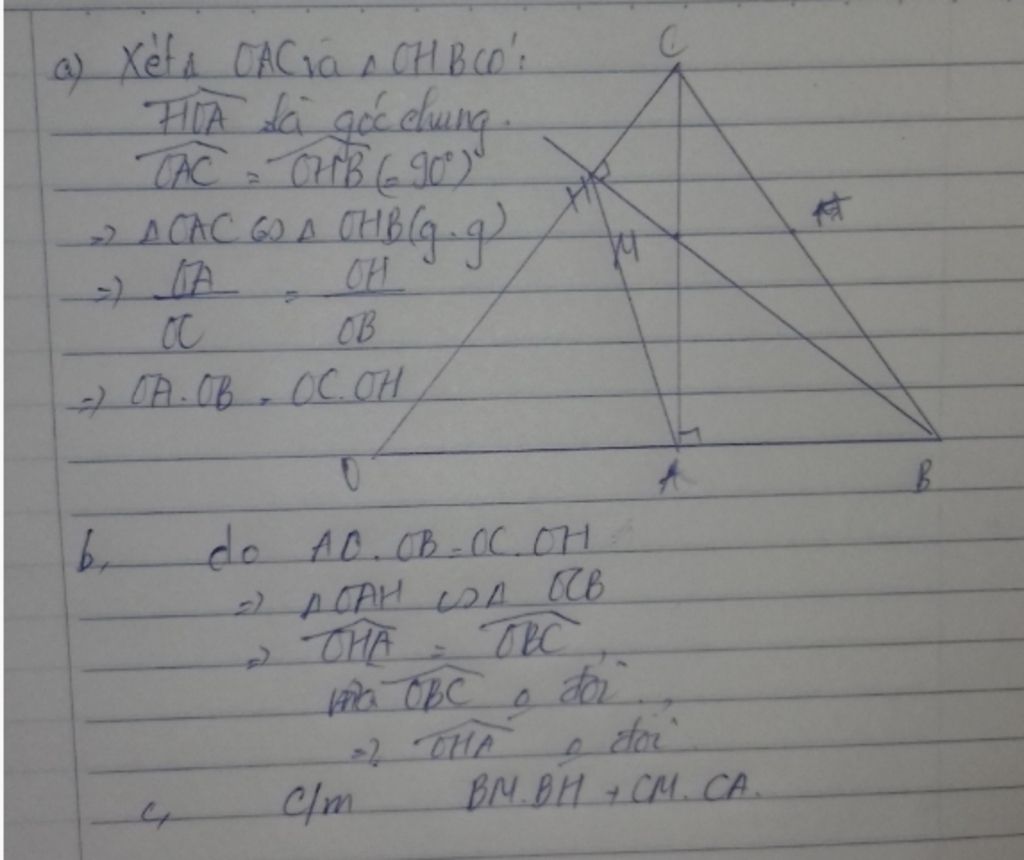 a) Xét Δ OAC và Δ OHB có:
HOA là góc chung.
OAC = OHB (= 90°)
=> Δ OAC ∽ Δ OHB (g.g)
=> OA/OC = OH/OB
=> OA.OB = OC.OH
C
H
M
O
A
B
b, do AO.OB = OC.OH
=> Δ OAH ∽ Δ OCB
=> OHA = OBC,
mà OBC o đổi,
=> OHA o đổi
c, C/m BM.BH + CM.CA.